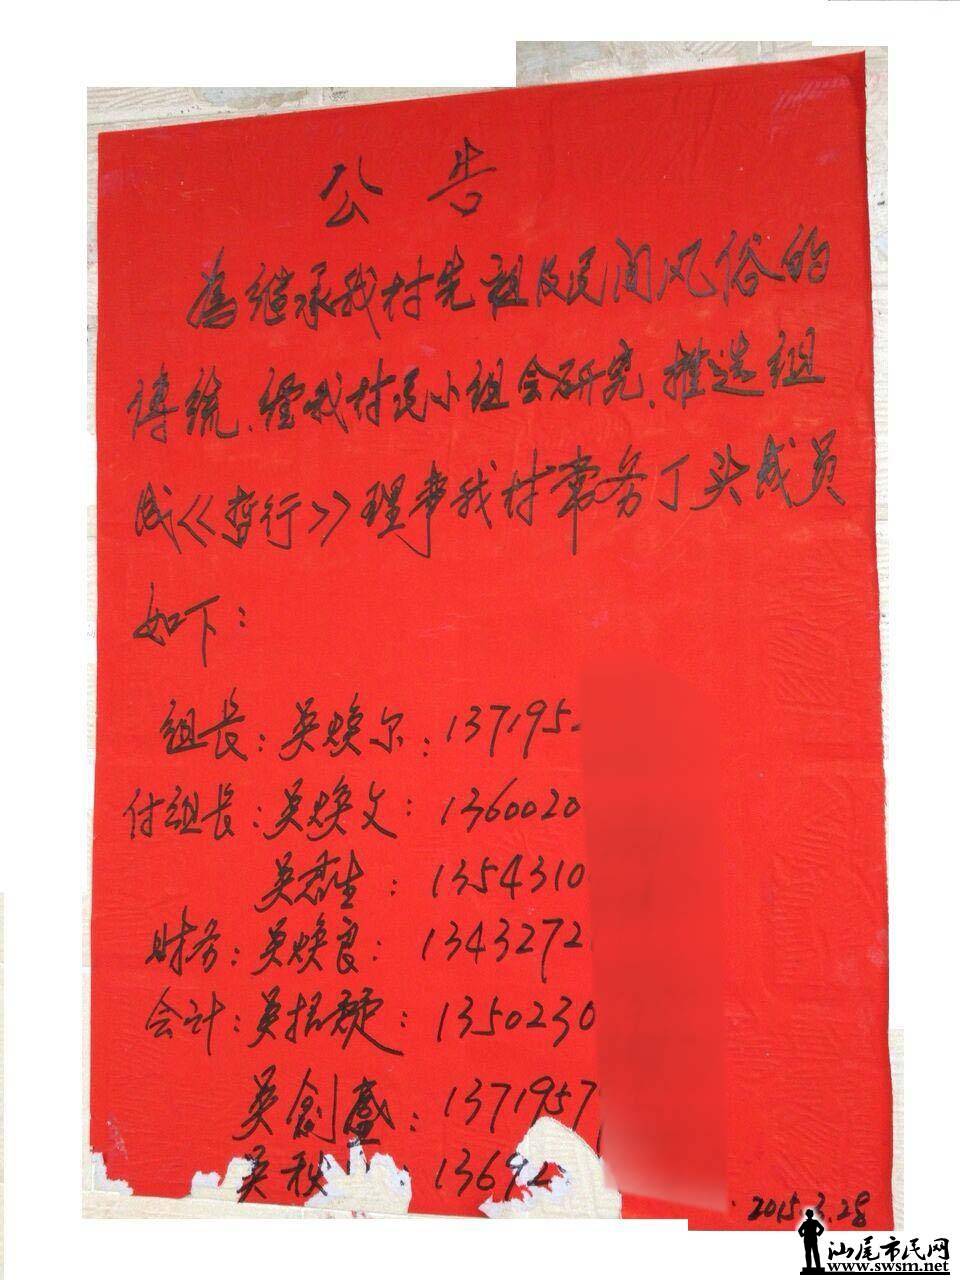 公告
為继承我村先祖及民间风俗的
传统、经我村民小组会研究、推选组
成《《暂行》》理事我村常务丁头成员
如下:
组长:吴焕尔:137195
付组长:吴焕文:1360020
吴君生:1354310
财务:吴焕良:1343272
会计:吴招:1350230
吴創盛:1371957
吴秋:1369
2015.3.28
汕尾市民网
www.swsm.net